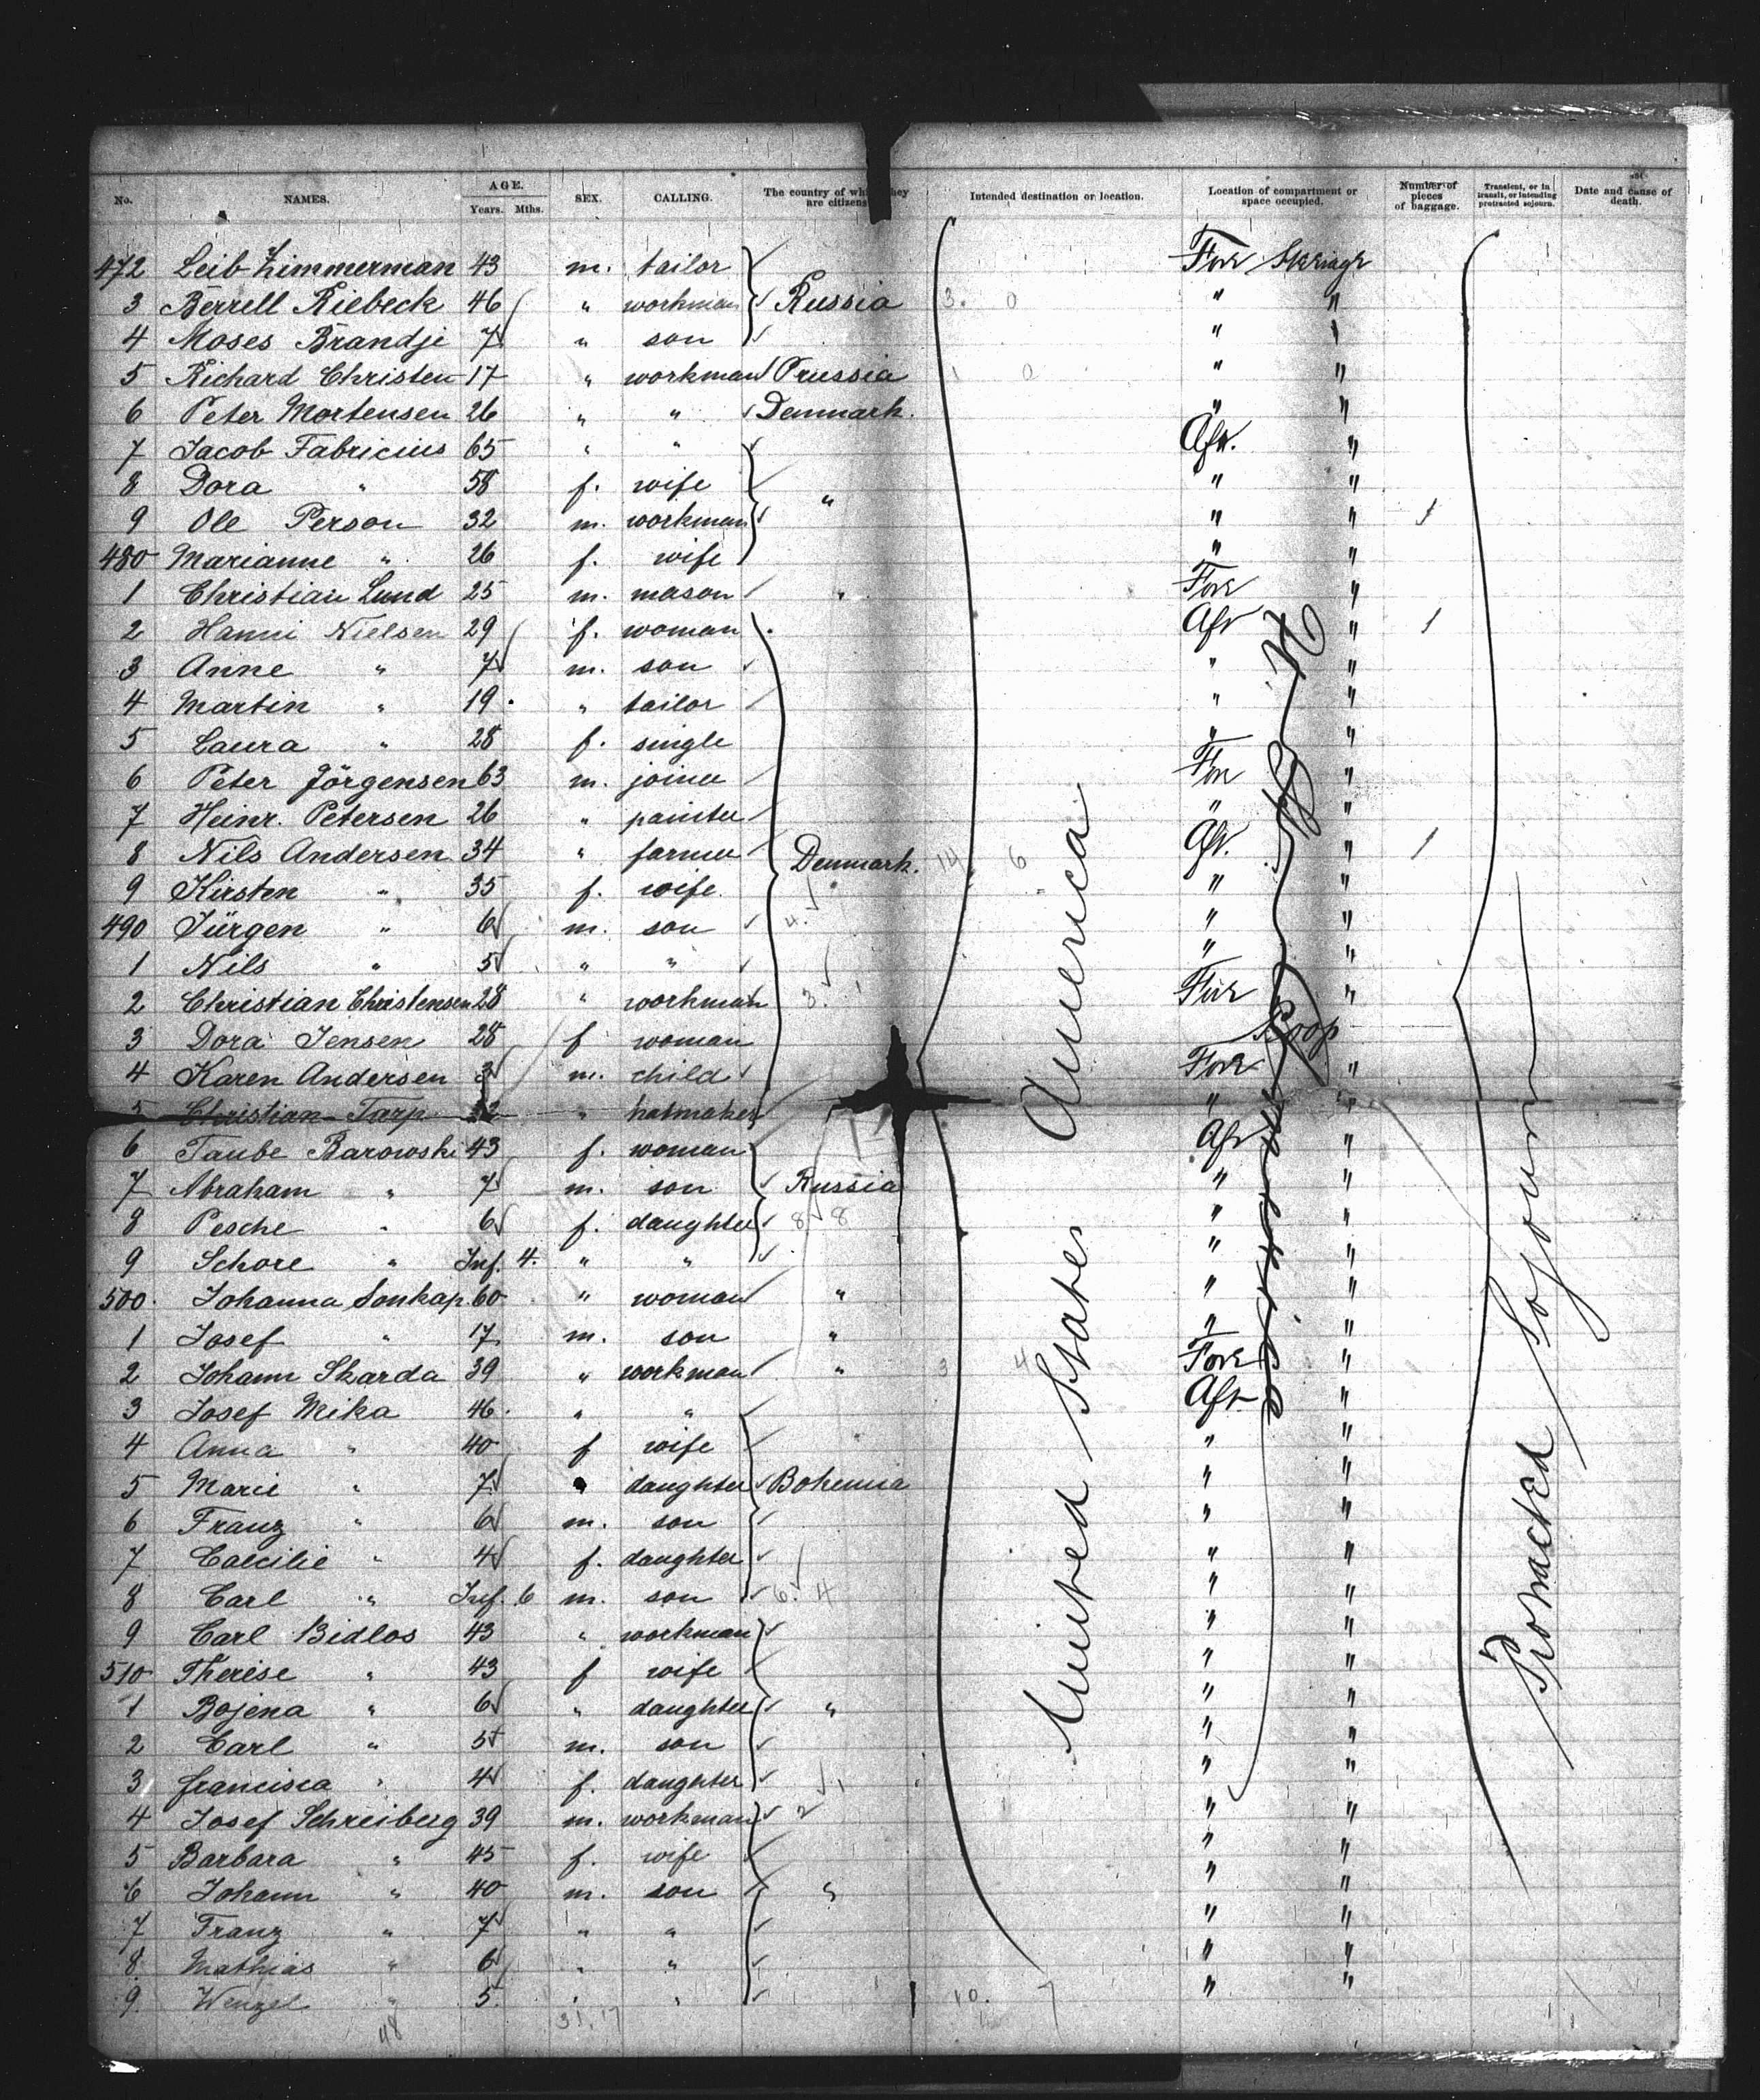 No. NAMES. AGE. Years. Mths. SEX. CALLING. The country of which they are citizens Intended destination or location. Location of compartment or space occupied. Number of pieces of baggage. Transient, or in transit, or intending protracted sojourn. Date and cause of death.
472 Leib Zimmerman 43 m. tailor Fore Steerage
3 Berrell Riebeck 46 " workman Russia " "
4 Moses Brandje 7 " son " "
5 Richard Christen 17 " workman Prussia " "
6 Peter Mortensen 26 " " Denmark. " "
7 Jacob Fabricius 65 " " Aft. "
8 Dora " 58 f. wife " " "
9 Ole Person 32 m. workman " " 1
480 Marianne " 26 f. wife " "
1 Christian Lund 25 m. mason " Fore "
2 Hanni Nielsen 29 f. woman Aft " 1
3 Anne " 7 m. son " "
4 Martin " 19 " tailor " "
5 Laura " 28 f. single " "
6 Peter Jörgensen 63 m. joiner Fore "
7 Heinr. Petersen 26 " painter " "
8 Nils Andersen 34 " farmer Denmark. Aft. " 1
9 Kirsten " 35 f. wife " "
490 Jürgen " 6 m. son " "
1 Nils " 5 " " " "
2 Christian Christensen 28 " workman Fore "
3 Dora Jensen 28 f woman Poop
4 Karen Andersen 3 m. child Fore "
5 Christian Tarp " hatmaker " "
6 Taube Barowski 43 f. woman Aft "
7 Abraham " 7 m. son Russia " "
8 Pesche " 6 f. daughter " "
9 Schore " Inf. 4. " " " "
500 Johanna Sonkap 60 " woman " " "
1 Josef " 17 m. son " " "
2 Johann Skarda 39 " workman " Fore "
3 Josef Mika 46 " " Aft "
4 Anna " 40 f wife " "
5 Marie " 7 daughter Bohemia " "
6 Franz " 6 m. son " "
7 Caecilie " 4 f. daughter " "
8 Carl " Inf. 6 m. son " "
9 Carl Bidlos 43 " workman " "
510 Therese " 43 f wife " "
1 Bojena " 6 " daughter " " "
2 Carl " 5 m. son " "
3 Francisca " 4 f. daughter " "
4 Josef Schreiberg 39 m. workman " "
5 Barbara " 45 f. wife " "
6 Johann " 40 m. son " " "
7 Franz " 7 " " " "
8. Mathias " 6 " " " "
9. Wenzel " 5 " " " "
United States America
Protracted Sojourn